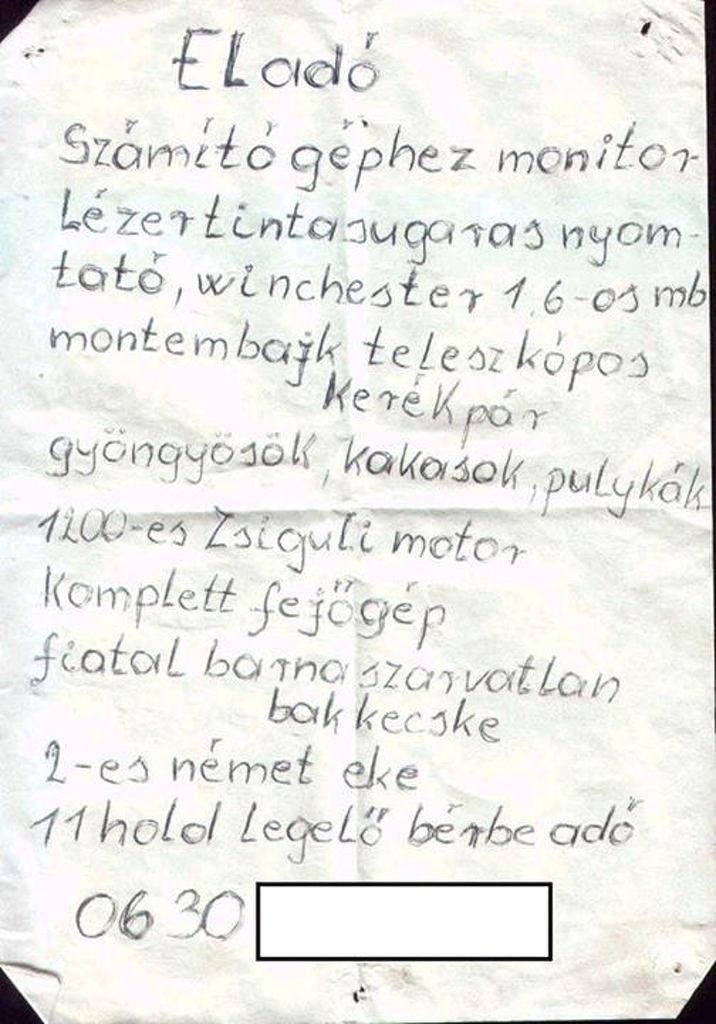 ELadó
Számító géphez monitor
Lézertintasugaras nyom-
tató, winchester 1,6-os mb
montembajk teleszkópos
kerékpár
gyöngyösök, kakasok, pulykák
1200-es Zsiguli motor
Komplett fejőgép
fiatal barna szarvatlan
bak kecske
2-es német eke
11 hold legelő bérbe adó
06 30